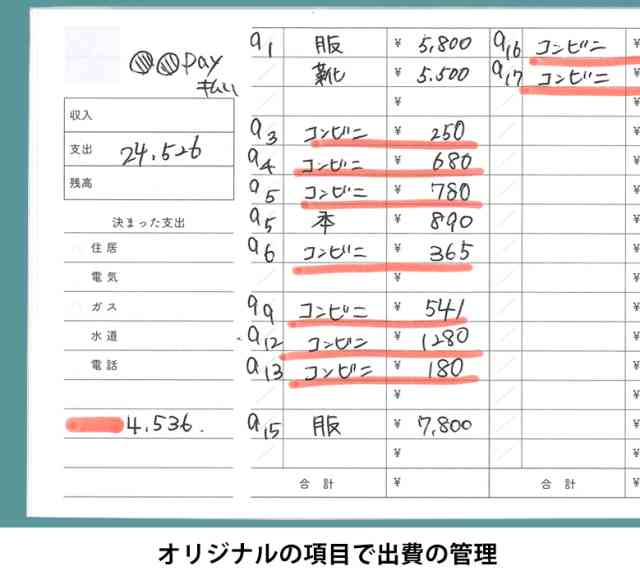 ●●pay
払い
収入
支出 24,526
残高
決まった支出
住居
電気
ガス
水道
電話
4,536.
9/1 服 ¥ 5,800
靴 ¥ 5,500
¥
9/3 コンビニ ¥ 250
9/4 コンビニ ¥ 680
9/5 コンビニ ¥ 780
9/5 本 ¥ 890
9/6 コンビニ ¥ 365
¥
9/9 コンビニ ¥ 541
9/12 コンビニ ¥ 1280
9/13 コンビニ ¥ 180
¥
9/15 服 ¥ 7,800
¥
合計 ¥
9/16 コンビニ ¥
9/17 コンビニ ¥
¥
¥
¥
¥
¥
¥
¥
¥
¥
¥
¥
¥
¥
合計 ¥
オリジナルの項目で出費の管理